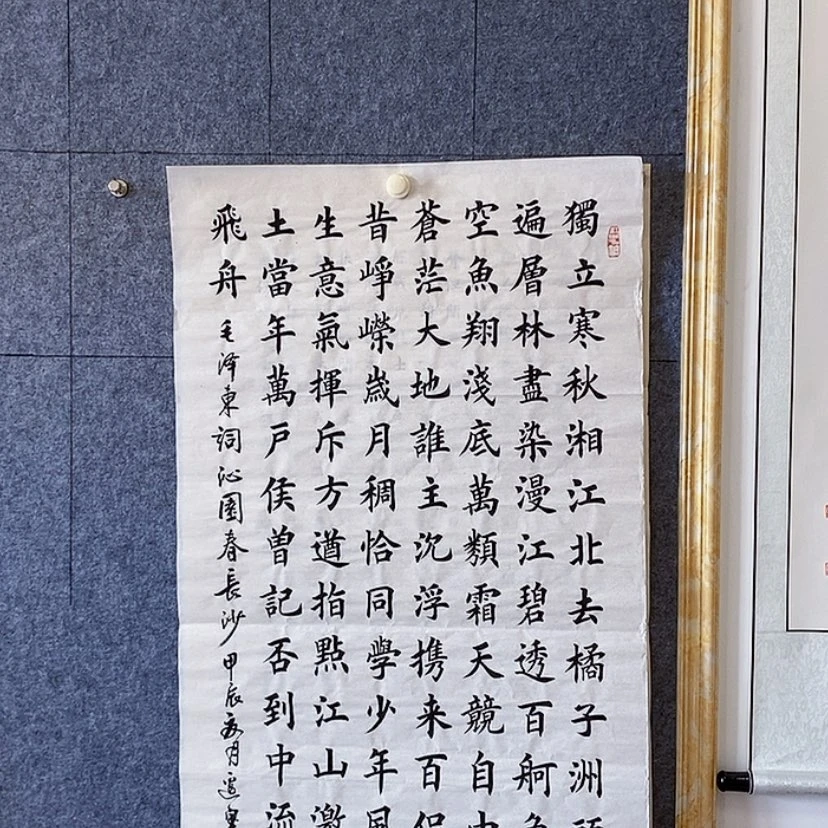 獨立寒秋湘江北去橘子洲
遍層林盡染漫江碧透百舸
空魚翔淺底萬類霜天競自由
蒼茫大地誰主沉浮携来百侣
昔崢嶸歲月稠恰同學少年風
生意氣揮斥方遒指點江山激
土當年萬戶侯曾記否到中流
飛舟 毛泽東詞沁園春長沙 甲辰夏月